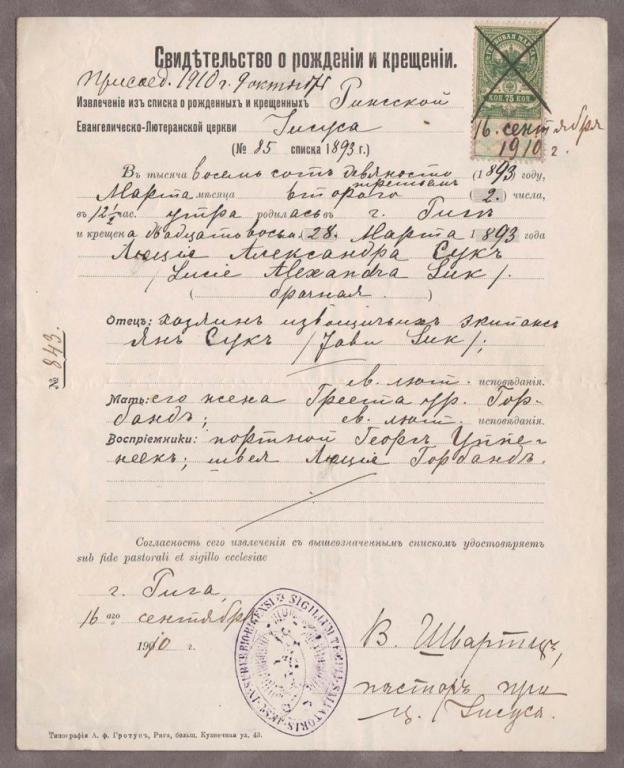 Свидѣтельство о рожденіи и крещеніи.
КОП. 75 КОП.
Присоед. 1910 г. 9 октября
Извлеченіе изъ списка о рожденныхъ и крещенныхъ Рижской
16. сентября
1910 г.
Евангелическо-Лютеранской церкви Іисуса
(№ 85 списка 1893 г.)
Въ тысяча восемь сотъ девяносто третьемъ (1893 году,
Марта мѣсяца второго (2.) числа,
въ 12½ час. утра родилась въ г. Ригѣ
и крещена двадцать восьм. (28. Марта 1893 года
Люціе Александра Сукъ
/Lucie Alexandra Suk/.
( брачная. )
Отецъ: хозяинъ извощичьихъ экипажъ
Янъ Сукъ / Suk/;
ев. лют. исповѣданія.
Мать: его жена Греета ур. Гор-
бандъ; ев. лют. исповѣданія.
Воспріемники: портной Георгъ Уппе-
неекъ; швея Люціе Горбандъ.
№ 843.
Согласность сего извлеченія съ вышеозначеннымъ спискомъ удостовѣряетъ
sub fide pastorali et sigillo ecclesiae
г. Рига,
16 аго сентября
1910 г.
В. Швартцъ,
пасторъ при
ц. Іисуса.
SIGILLUM TEMPLI SALVATORIS JESU IN SUBURBIO RIGENSI
Типографія А. ф. Гротусъ, Рига, больш. Кузнечная ул. 43.